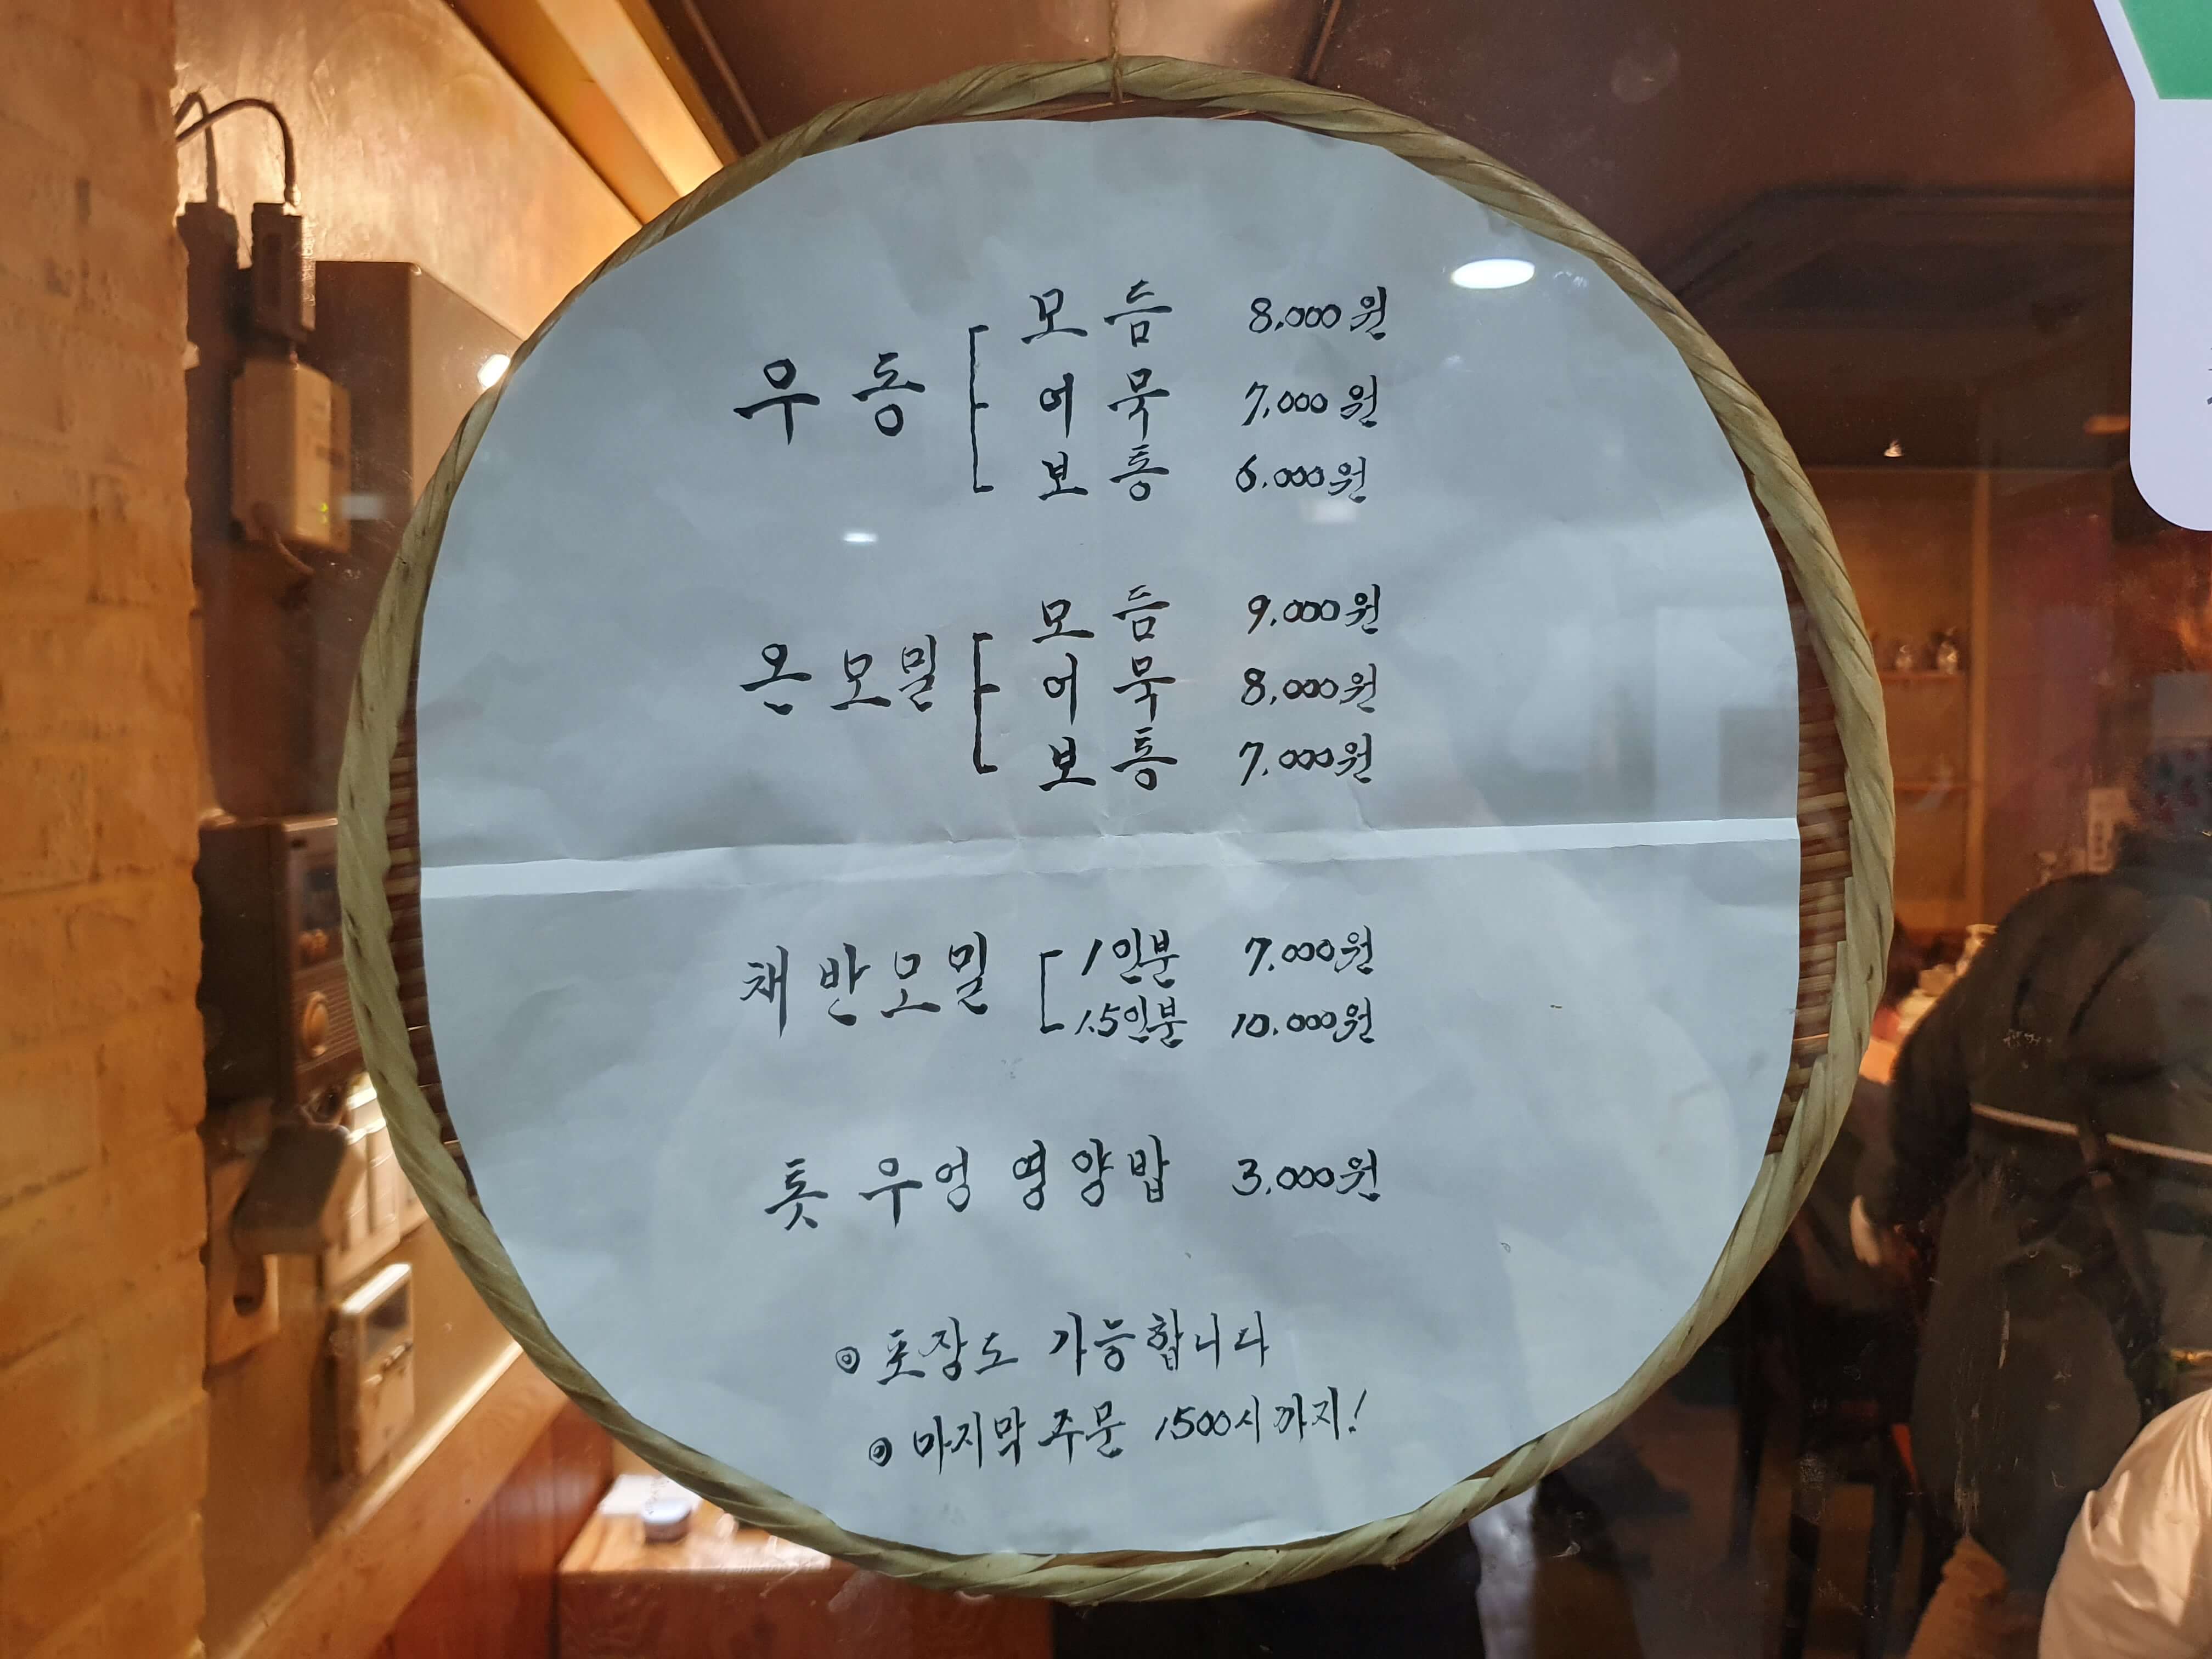 우동
모듬 8,000원
어묵 7,000원
보통 6,000원
온모밀
모듬 9,000원
어묵 8,000원
보통 7,000원
채반모밀
1인분 7,000원
1.5인분 10,000원
톳 우엉 영양밥 3,000원
◎ 포장도 가능합니다
◎ 마지막 주문 1500시 까지!